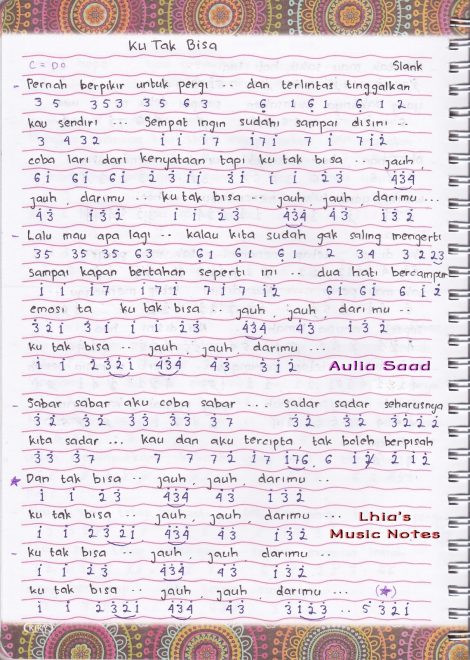 Ku Tak Bisa
C = Do Slank
- Pernah berpikir untuk pergi ... dan terlintas tinggalkan
3 5 3 5 3 3 5 6 3 6̣ 1 6̣ 1 6̣ 1 2
kau sendiri ... Sempat ingin sudahi sampai disini ..
3 4 3 2 i i i 7 i 7 i 7 i 7 i 2̇
coba lari dari kenyataan tapi ku tak bisa .. jauh,
6 i 6 i 6 i 2̇ 3̇ i i 3̇ i i i 2̇ 3̇ 4̇3̇4̇
jauh, darimu .. ku tak bisa .. jauh, jauh, darimu ...
4̇ 3̇ i 3̇ 2̇ i i 2̇ 3̇ 4̇3̇4̇ 4̇ 3̇ i 3̇ 2̇
- Lalu mau apa lagi .. kalau kita sudah gak saling mengerti
3 5 3 5 3 5 6 3 6̣ 1 6̣ 1 6̣ 1 2 3 4 3 2 23
sampai kapan bertahan seperti ini .. dua hati bercampur
i i i 7 i 7 i 7 i 7 i 2̇ 6 i 6 i 6 i 2̇
emosi ta ku tak bisa .. jauh, jauh, dari mu ...
3̇ 2̇ i 3̇ i i i 2̇ 3̇ 4̇3̇4̇ 4̇ 3̇ i 3̇ 2̇
ku tak bisa .. jauh, jauh, darimu ...
i i 2̇ 3̇2̇i 4̇3̇4̇ 4̇ 3̇ 3̇ i 2̇
Aulia Saad
- Sabar sabar aku coba sabar ... Sadar sadar seharusnya
3̇ 2̇ 3̇ 2̇ 3̇ 3̇ 3̇ 3̇ 3̇ 7 3̇ 2̇ 3̇ 2̇ 3̇ 2̇ 2̇ 2̇
kita sadar ... kau dan aku tercipta, tak boleh berpisah
3̇ 3̇ 3̇ 7 7 7 7 2̇ i 7 i76, 6 i 2̇ 2̇ i 2̇
★ Dan tak bisa .. jauh, jauh, darimu ..
i i 2̇ 3̇ 4̇3̇4̇ 4̇ 3̇ i 3̇ 2̇
ku tak bisa .. jauh, jauh, darimu ...
i i 2̇ 3̇2̇i 4̇3̇4̇ 4̇ 3̇ i 3̇ 2̇
Lhia's
Music Notes
- ku tak bisa .. jauh, jauh, darimu ..
i i 2̇ 3̇ 4̇3̇4̇ 4̇ 3̇ i 3̇ 2̇
ku tak bisa .. jauh, jauh, darimu ... (★)
i i 2̇ 3̇2̇i 4̇3̇4̇ 4̇ 3̇ 3̇ i2̇3̇ .. 5 3̇2̇i